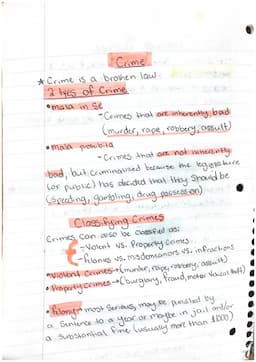 Crime
* Crime is a broken law.
2 types of Crime
• mala in se
- Crimes that are inherently bad
(murder, rape, robbery, assault)
• mala prohibita
- Crimes that are not inherently
bad, but criminalized because the legislature
(or public) has decided that they should be
(speeding, gambling, drug possession)
Classifying Crimes
Crimes can also be classified as:
- Violent vs. Property crimes
- Felonies vs. misdemeanors vs. infractions
• Violent Crimes → (murder, rape, robbery, assault)
• Property Crimes → (burglary, fraud, motor vehicle theft)
• Felony - most serious, may be punished by
a sentence to a year or maybe in jail and/or
a substantial fine (usually more than $1000)